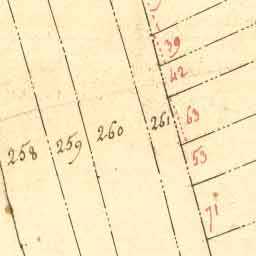 39
42
63
53
71
258 259 260 261